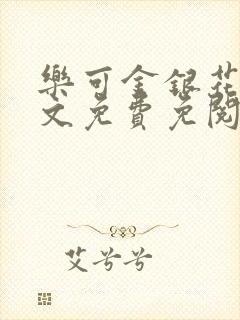 樂可金銀花
文免費免閱
艾兮兮